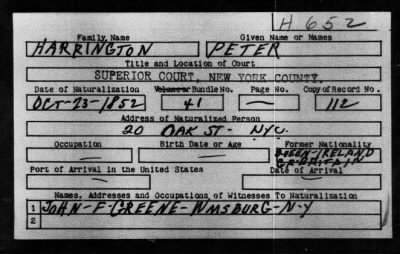 H 652
Family Name Given Name or Names
HARRINGTON PETER
Title and Location of Court
SUPERIOR COURT, NEW YORK COUNTY.
Date of Naturalization Volume or Bundle No. Page No. Copy of Record No.
OCT-23-1852 41 — 112
Address of Naturalized Person
20 OAK ST- NYC.
Occupation Birth Date or Age Former Nationality
— — QUEEN-IRELAND
GR-BRITAIN
Port of Arrival in the United States Date of Arrival
— —
Names, Addresses and Occupations of Witnesses To Naturalization
1 JOHN-F-GREENE-WMSBURG-N-Y
2